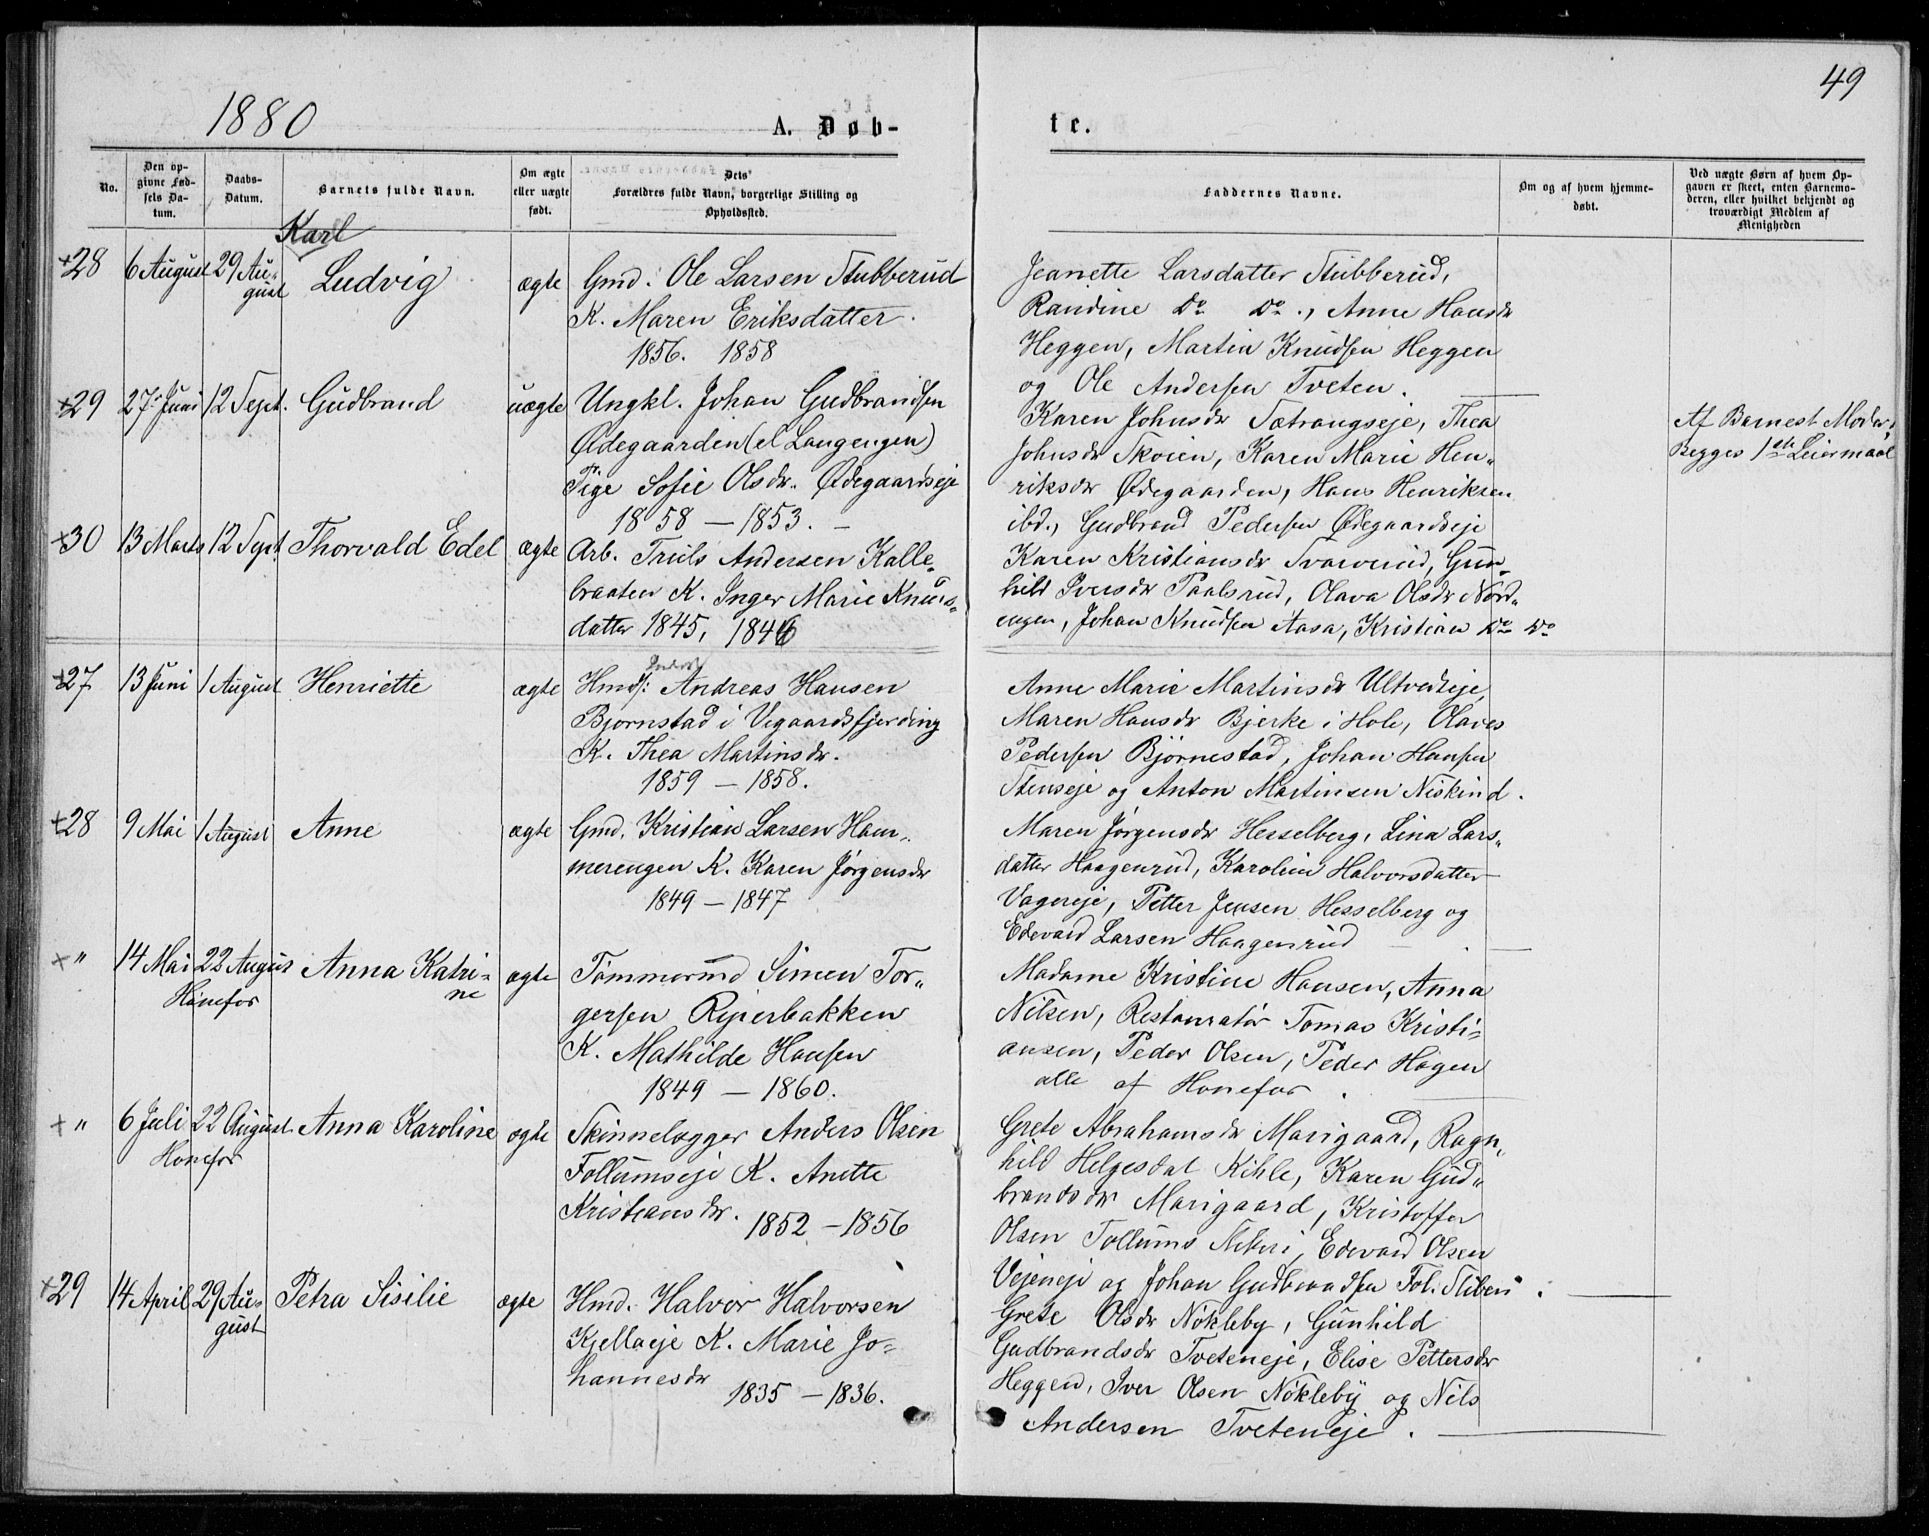 49
1880
A. Døb-
te.
No.
Den op-
givne Fød-
sels Da-
tum.
Daabs-
Datum.
Barnets fulde Navn.
Om ægte
eller uægte
født.
Dets
Forældres fulde Navn, borgerlige Stilling og
Opholdssted.
Faddernes Navne.
Om og af hvem hjemme-
døbt.
Ved uægte Børn af hvem Op-
gaven er skeet, enten Barnemo-
deren, eller hvilket bekjendt og
troværdigt Medlem af
Menigheden
+28 6 August 29 Au-
gust
Karl
Ludvig
ægte
Gmd. Ole Larsen Stubberud
K. Maren Eriksdatter.
1856. 1858
Jeanette Larsdatter Stubberud,
Randine Do Do., Anne Hansdr
Heggen, Martin Knudsen Heggen
og Ole Andersen Tveten.
+29 27 Juni 12 Sept. Gudbrand uægte
Ungkl. Johan Gudbrandsen
Ødegaarden (el Langengen)
Pige Sofie Olsdr. Ødegaardseje
1858 — 1853. —
Karen Johnsdr Sætrangseje, Thea
Johnsdr Skoien, Karen Marie Hen-
riksdr Ødegaarden, Hans Henriksen
ibd., Gudbrand Pedersen Ødegaardseje
Af Barnest Moder.
Begges 1ste Leiermaal
+30 13 Marts 12 Sept. Thorvald Edel ægte
Arb. Truls Andersen Kalle-
braaten K. Inger Marie Knuds-
datter 1845, 1846
Karen Kristiansdr Svarverud, Gun-
hild Iversdr Paalsrud, Olava Olsdr Nord-
engen, Johan Knudsen Aasa, Kristian Do Do
+27 13 Juni 1 August Henriette ægte
Hmd: Andreas Hansen
Bjornstad i Vegaardsfjerding
K. Thea Martinsdr.
1859 — 1858.
Anne Marie Martinsdr Ultvedteje,
Maren Hansdr Bjerke i Hole, Olaves
Pedersen Björnestad, Johan Hansen
Stenseje og Anton Martinsen Niskind.
+28 9 Mai 1 August Anne ægte
Gmd. Kristian Larsen Ham-
merengen K. Karen Jørgensdr
1849 — 1847
Maren Jørgensdr Hesselberg, Lina Lars-
datter Haagenrud, Karoline Halvorsdatter
Vagereje, Petter Jensen Hesselberg og
Edevard Larsen Haagenrud
+ " 14 Mai 22 August Anna Katri-
ne
Hönefos
ægte
Tømmermd Simen Tor-
gersen Riperbakken
K. Mathilde Hansen
1849 — 1860.
Madame Kristine Hansen, Anna
Nilsen, Restauratör Tomas Kristi-
ansen, Peder Olsen, Peder Hagen
alle af Honefos.
+ " 6 Juli 22 August Anna Karoline ægte
Honefos
Skinnelægger Anders Olsen
Follumseje K. Anette
Kristiansdr. 1852 — 1856
Grete Abrahamsdr Marigaard, Ragn-
hild Helgesdat Kihle, Karen Gud-
brandsdr Marigaard, Kristoffer
Olsen Follums Sliberi, Edevard Olsen
Vejeneje og Johan Gudbrandsen Fol. Sliberi.
+29 14 April 29 Au-
gust
Petra Sisilie ægte
Hmd. Halvor Halvorsen
Kjellaeje K. Marie Jo-
hannesdr
1835 — 1836.
Grete Olsdr Nökleby, Gunhild
Gudbrandsdr Tveteneje, Elise Pettersdr
Heggen, Iver Olsen Nökleby og Nils
Andersen Tveteneje.